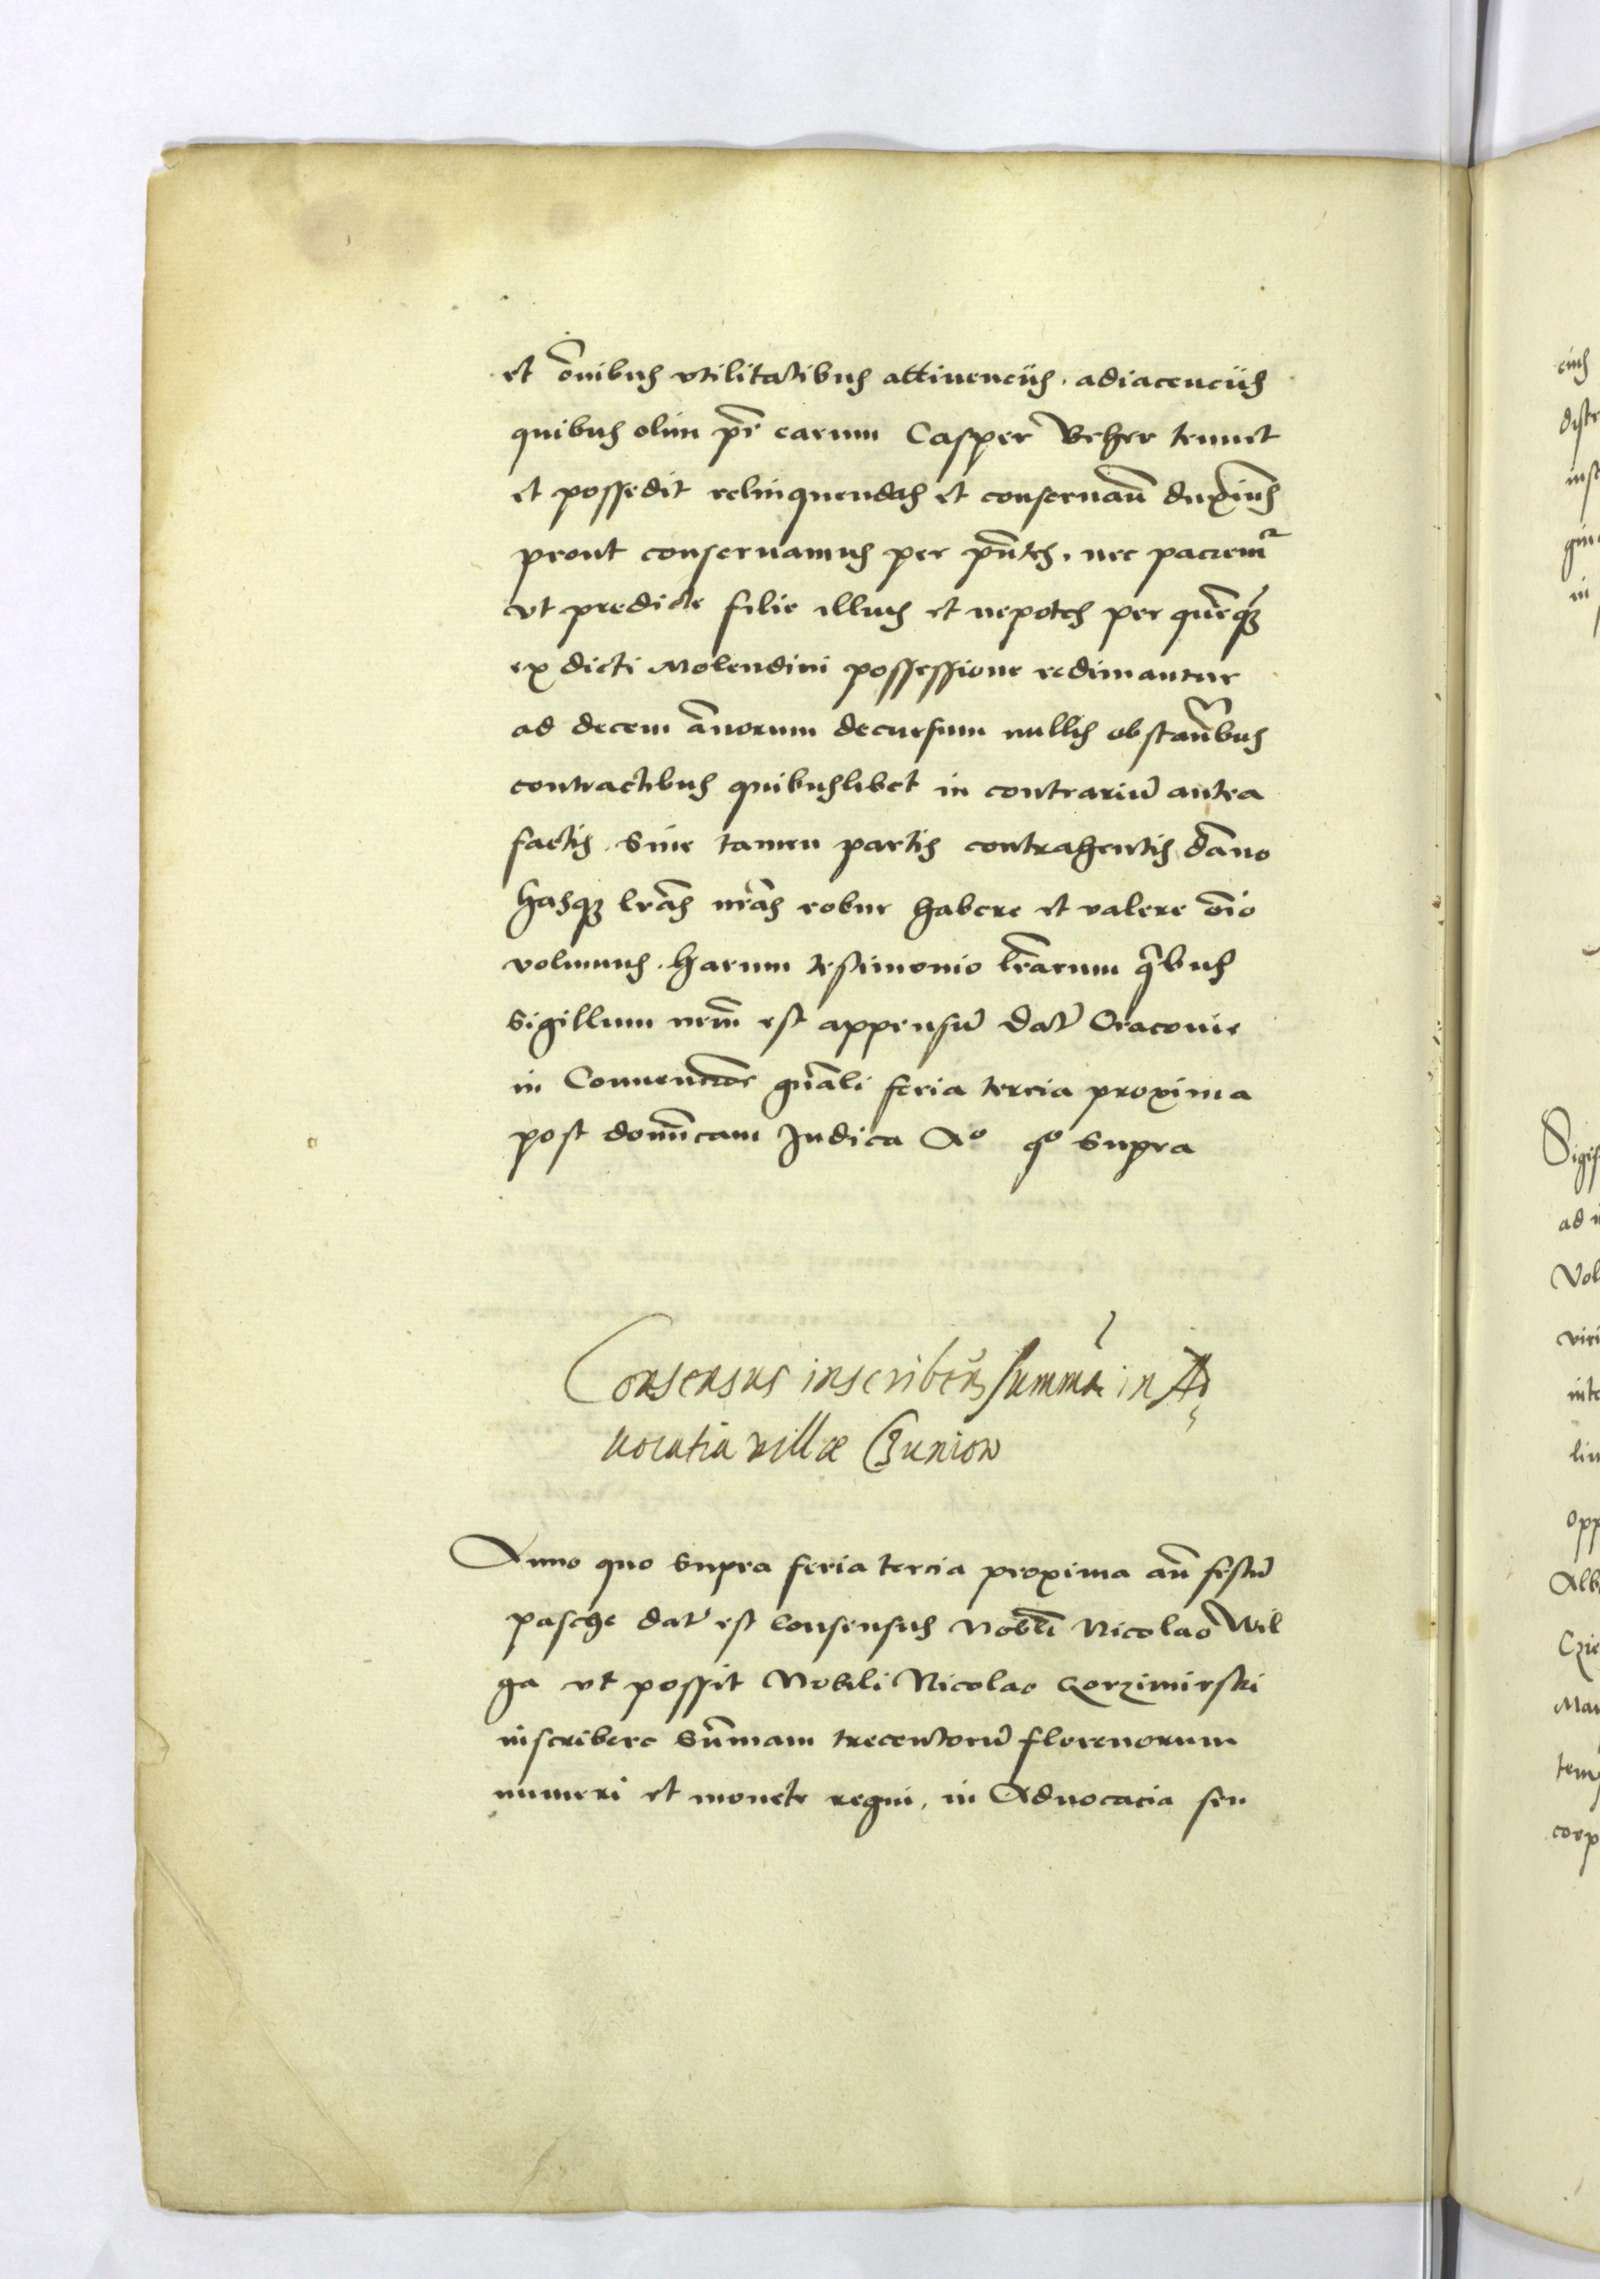 et om̄ibus vtilitatibus attinenciis. adiacenciis
quibus olim pr̄ earum Casper Beher tenuit
et possedit relinquendas et conseruan̄ duximꝰ
prout conseruamus per pn̄tes. nec paciemur
vt predicte filie illius et nepotes per quēqꝫ
ex dicti Molendini possessione redimantur
ad decem an̄orum decursum nullis obstan̄bus
contractibus quibuslibet in contrariū antea
factis. Sine tamen partis contrahentis dāno
hasqꝫ lrās nrās robur habere et valere om̄io
volumus. harum testimonio lrārum qͥbus
Sigillum nrm̄ est appensū Dat̄ Cracouie
in Conuencōe gnāli feria tercia proxima
post domīcam Judica Aº qº Supra
Consensus inscribēn summā in Ad
uocatia villæ Czuniow
Anno quo Supra feria tercia proxima an̄ festū
pasche dat̄ est Consensus Nobli Nicolao Wil
ga vt possit Nobili Nicolao Gorzimirski
inscribere Sūmam trecentorū florenorum
numeri et monete regni, in Aduocacia seu